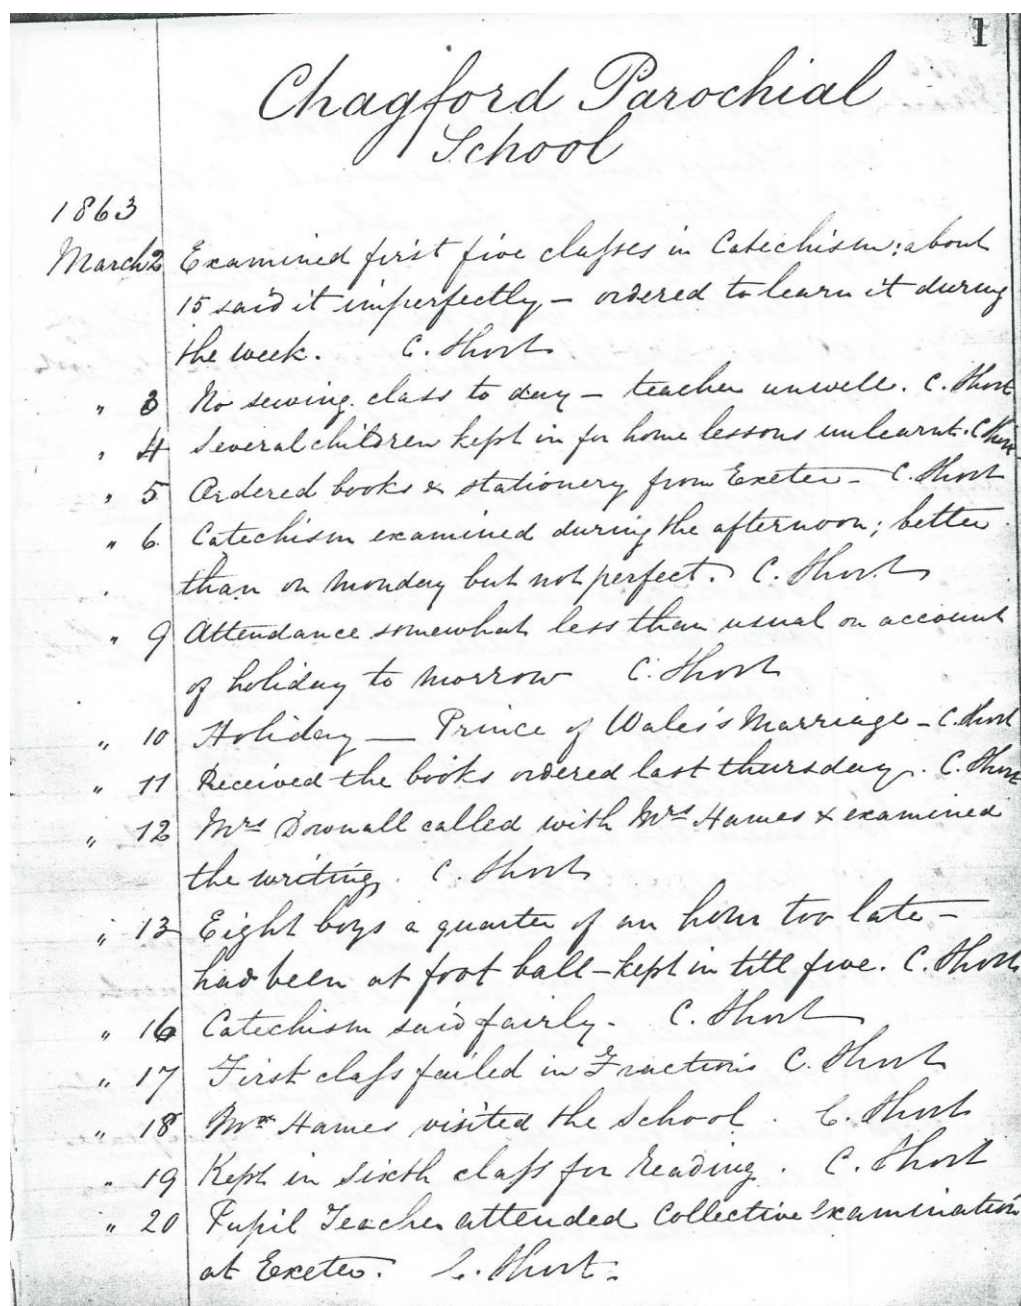 1
Chagford Parochial
School
1863
March 2 Examined first five classes in Catechism; about
15 said it imperfectly – ordered to learn it during
the week. C. Short
" 3 No sewing class to day – teacher unwell. C. Short
" 4 Several children kept in for home lessons unlearnt. C Short
" 5 Ordered books & stationery from Exeter – C. Short
" 6 Catechism examined during the afternoon; better
than on Monday but not perfect. C. Short
" 9 Attendance somewhat less than usual on account
of holiday to morrow C. Short
" 10 Holiday — Prince of Wales's Marriage – C. Short
" 11 Received the books ordered last thursday. C. Short
" 12 Mrs Downall called with Mrs Hames & examined
the writing. C Short
" 13 Eight boys a quarter of an hour too late –
had been at foot ball – kept in till five. C. Short
" 16 Catechism said fairly. C. Short
" 17 First class failed in Fractions C. Short
" 18 Mrs Hames visited the School. C. Short
" 19 Kept in sixth class for Reading. C. Short
" 20 Pupil Teacher attended Collective Examination
at Exeter. C. Short.